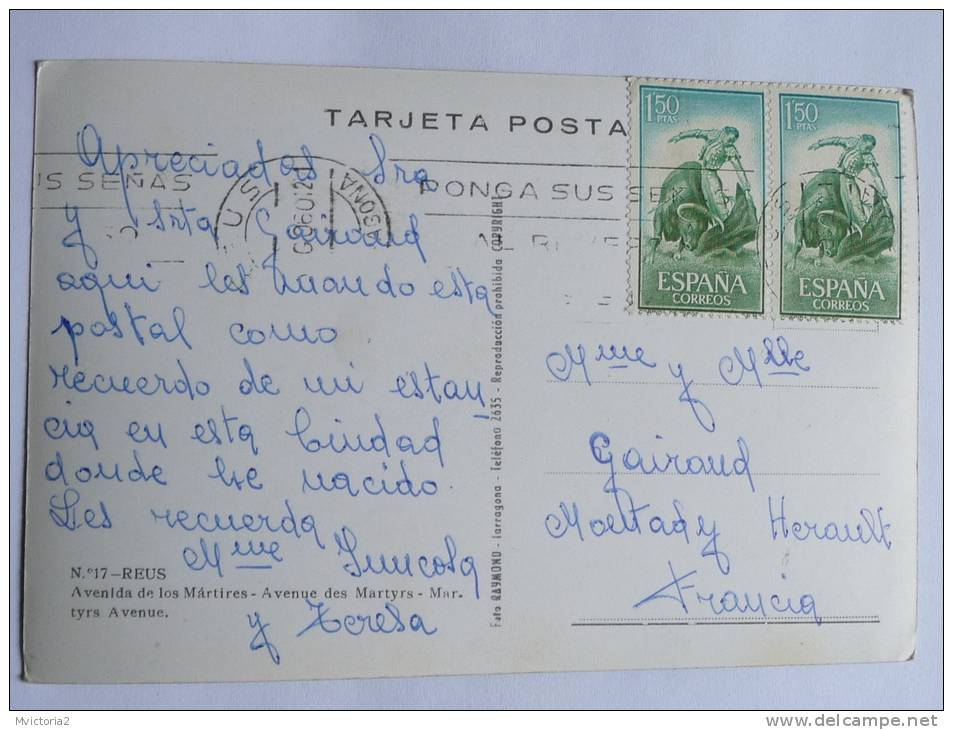 TARJETA POSTA
1'50
PTAS
ESPAÑA
CORREOS
1'50
PTAS
ESPAÑA
CORREOS
US SEÑAS
PONGA SUS SE
AL RE
Apreciadas Sra
y Srta Gairaud
aqui les mando esta
postal como
recuerdo de mi estan
cia en esta Ciudad
donde he nacido.
Les recuerda
Mme Juncosa
y Teresa
N.º 17 - REUS
Avenida de los Mártires - Avenue des Martyrs - Mar-
tyrs Avenue.
Foto RAYMOND - Tarragona - Teléfono 2635 - Reproducción prohibida COPYRIGHT
Mme y Mlle
Gairaud
Montady Herault
Francia
Mvictoria2
www.delcampe.net